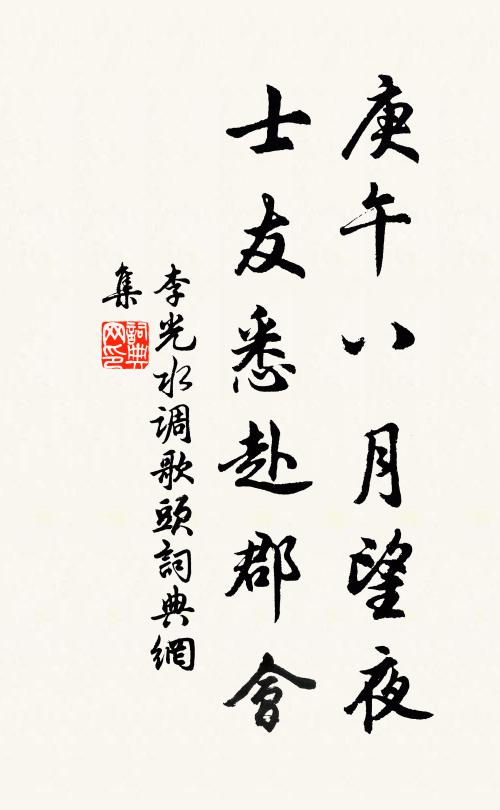 庚午八月望夜
士友悉赴郡會
李光水调歌頭詞典網
集
詞典網印